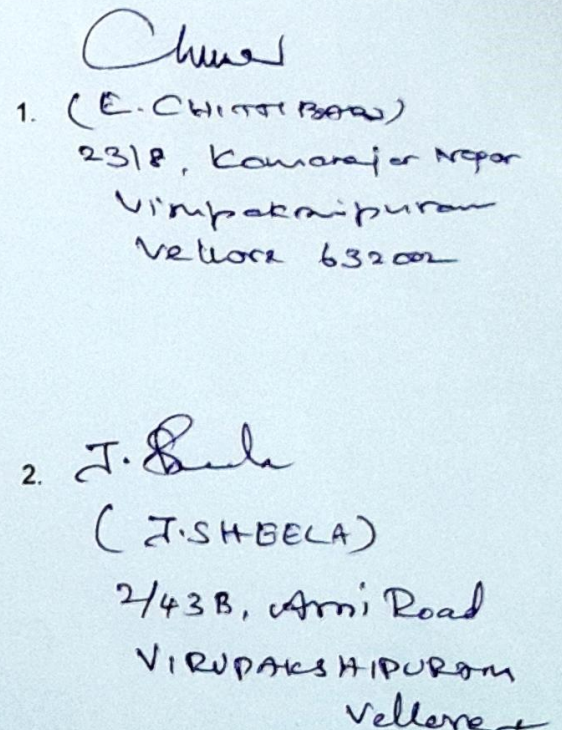 1. (E. CHITTIBABU)
2318, Kamarajar Nagar
Virupakshipuram
Vellore 632002
2. J. Sheela
(J. SHEELA)
2/43B, Arni Road
VIRUPAKSHIPURAM
Vellore